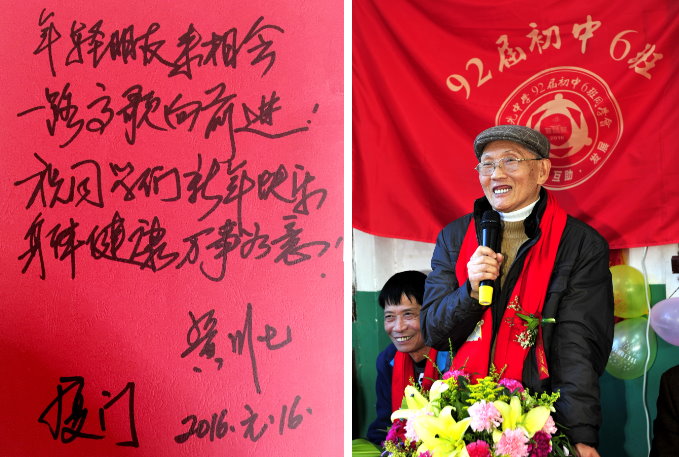 年轻朋友来相会
一路高歌向前进！
祝同学们新年快乐
身体健康万事如意！
川七
厦门
2016.元.16.
92届初中6班
中学92届初中6班同学会
互助·发展